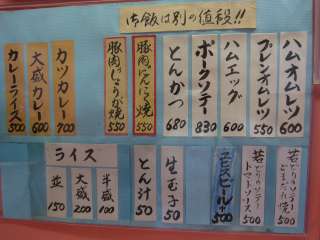 お飯は別の値段!!
ハムオムレツ 600
プレンオムレツ 550
ハムエッグ 600
ポークソテー 830
とんかつ 680
豚肉にんにく焼 550
豚肉しょうが焼 550
カツカレー 700
大盛カレー 600
カレーライス 500
若どりのソテー 500
若どりのソテー トマトソース 500
エビスビール 500
生玉子 50
とん汁 50
ライス
半盛 100
大盛 200
並 150